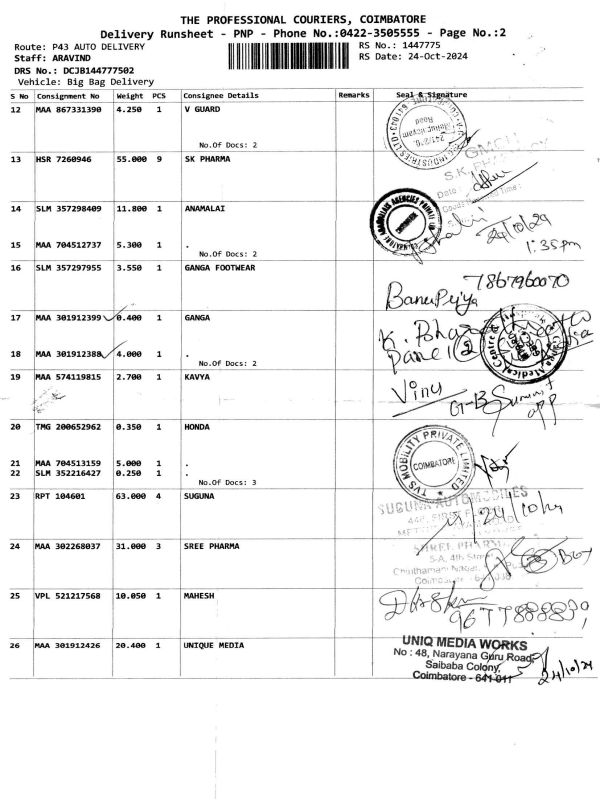 THE PROFESSIONAL COURIERS, COIMBATORE
Delivery Runsheet - PNP - Phone No.:0422-3505555 - Page No.:2
Route: P43 AUTO DELIVERY
RS No.: 1447775
Staff: ARAVIND
RS Date: 24-Oct-2024
DRS No.: DCJB144777502
Vehicle: Big Bag Delivery
S No Consignment No Weight PCS Consignee Details Remarks Seal & Signature
12 MAA 867331390 4.250 1 V GUARD
No.Of Docs: 2
13 HSR 7260946 55.000 9 SK PHARMA
14 SLM 357298409 11.800 1 ANAMALAI
24/10/24
15 MAA 704512737 5.300 1 .
1:35pm
No.Of Docs: 2
16 SLM 357297955 3.550 1 GANGA FOOTWEAR
7867960070
BanuPriya
17 MAA 301912399 0.400 1 GANGA
18 MAA 301912388 4.000 1 .
No.Of Docs: 2
19 MAA 574119815 2.700 1 KAVYA
Vinu
20 TMG 200652962 0.350 1 HONDA
TVS MOBILITY PRIVATE LIMITED
COIMBATORE
21 MAA 704513159 5.000 1 .
22 SLM 352216427 0.250 1 .
No.Of Docs: 3
23 RPT 104601 63.000 4 SUGUNA
SUGUNA AUTOMOBILES
24/10/24
24 MAA 302268037 31.000 3 SREE PHARMA
SHREE PHARMA
25 VPL 521217568 10.050 1 MAHESH
26 MAA 301912426 20.400 1 UNIQUE MEDIA
UNIQ MEDIA WORKS
No : 48, Narayana Guru Road,
Saibaba Colony,
Coimbatore - 641 011
24/10/24